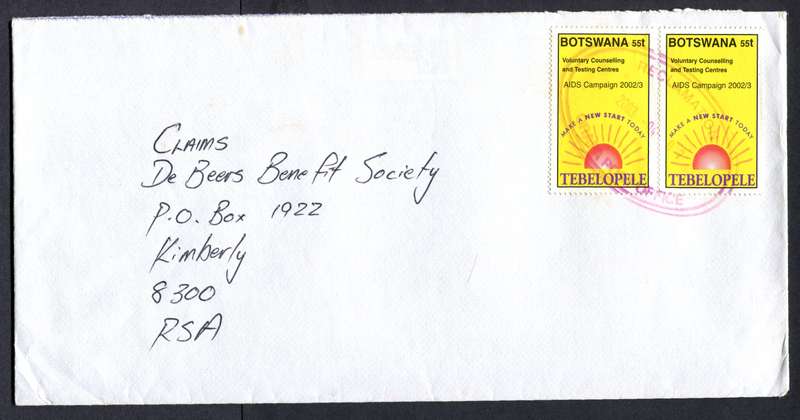 BOTSWANA 55t
Voluntary Counselling
and Testing Centres
AIDS Campaign 2002/3
MAKE A NEW START TODAY
TEBELOPELE
BOTSWANA 55t
Voluntary Counselling
and Testing Centres
AIDS Campaign 2002/3
MAKE A NEW START TODAY
TEBELOPELE
OFFICE
CLAIMS
De Beers Benefit Society
P.O. Box 1922
Kimberly
8300
RSA